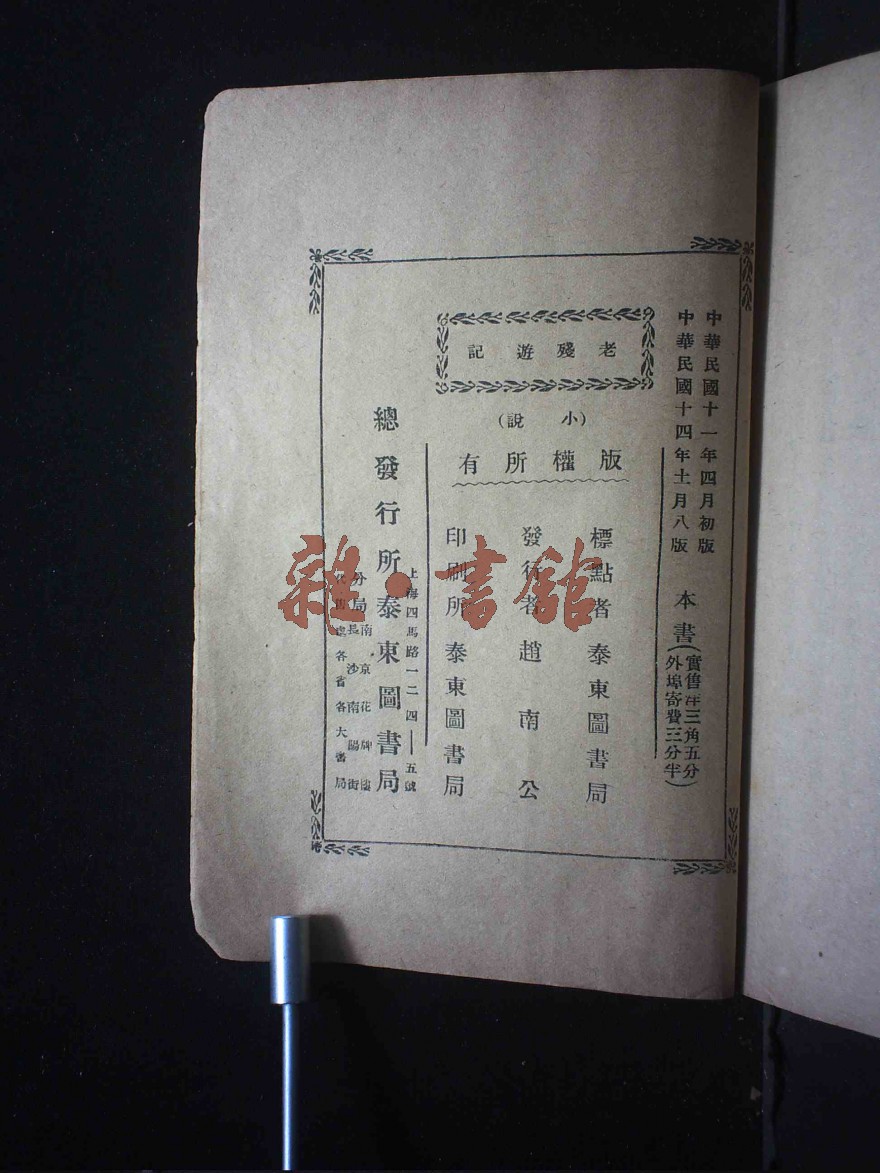 中華民國十一年四月初版
中華民國十四年十一月八版
本書(實售洋三角五分
外埠寄費三分半)
老殘遊記
(小說)
版權所有
標點者 泰東圖書局
發行者 趙南公
印刷所 泰東圖書局
上海四馬路一二四——五號
總發行所 泰東圖書局
南京花牌樓
分局
長沙南陽街
代售處 各省各大書局
雜·書館